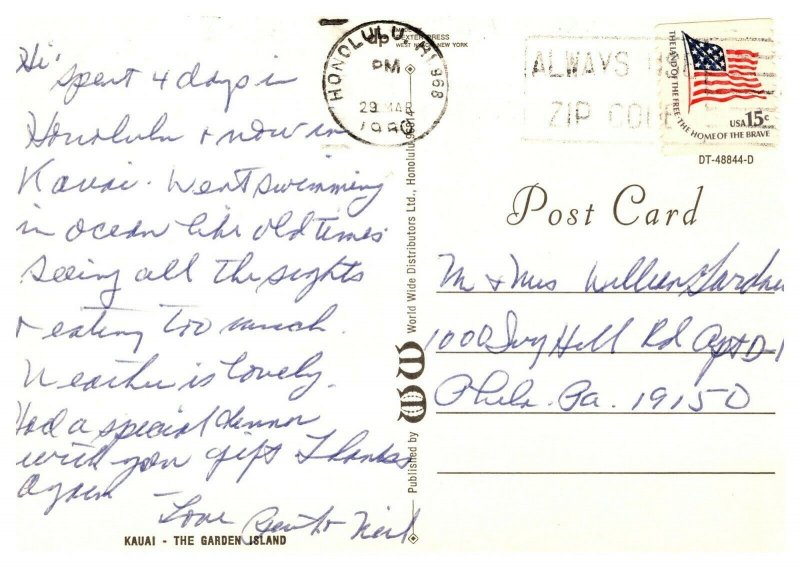 Hi'
spent 4 days in
Honolulu + now in
Kauai. Went swimming
in ocean like old times
seeing all the sights
+ eating too much.
Weather is lovely.
Had a special dinner
with your gift Thanks
again
Love
KAUAI - THE GARDEN ISLAND
DEXTER PRESS
WEST NYACK, NEW YORK
HONOLULU, HI 968
PM
29 MAR
Published by WW World Wide Distributors Ltd., Honolulu 96814
ALWAYS USE
ZIP CODE
THE LAND OF THE FREE · THE HOME OF THE BRAVE
USA 15c
DT-48844-D
Post Card
Mr + Mrs William Gardner
1000 Ivy Hill Rd Apt D-1
Phila. Pa. 19150